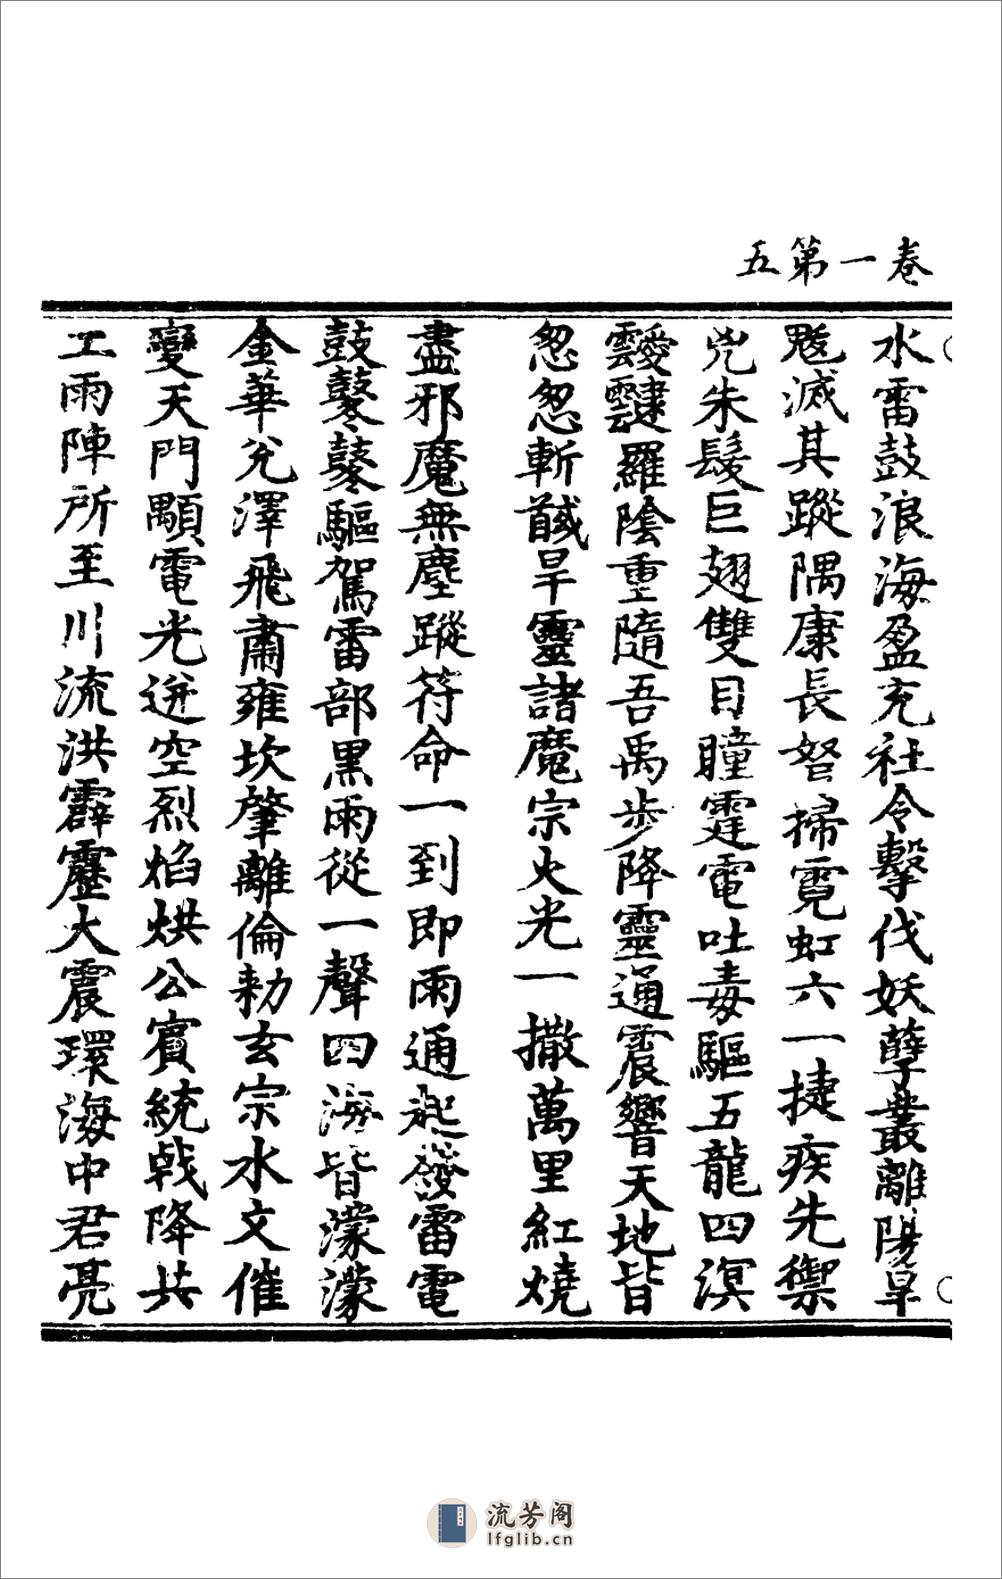 五第一卷
水雷鼓浪海盈充社令擊伐妖孽叢離陽旱
魃滅其蹤隅康長弩掃霓虹六一捷疾先禦
兇朱髮巨翅雙目瞳霆電吐毒驅五龍四溟
靉靆羅陰重隨吾禹步降靈通震響天地皆
怱怱斬馘旱靈諸魔宗火光一撒萬里紅燒
盡邪魔無塵蹤符命一到即雨通起發雷電
鼓鼕鼕驅駕雷部黑雨從一聲四海皆濛濛
金華兌澤飛肅雍坎肇離倫勑玄宗水文催
變天門顯電光迸空烈焰烘公賓統戟降共
工雨陣所至川流洪霹靂大震環海中君亮
流芳阁
lfglib.cn